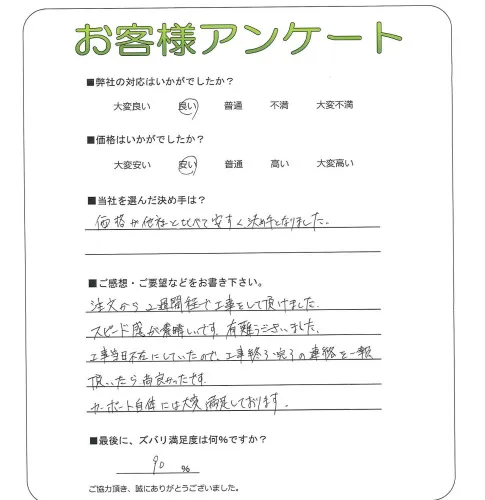 お客様アンケート
■弊社の対応はいかがでしたか？
大変良い 良い 普通 不満 大変不満
■価格はいかがでしたか？
大変安い 安い 普通 高い 大変高い
■当社を選んだ決め手は？
価格が他社と比べて安すく決め手となりました。
■ご感想・ご要望などをお書き下さい。
注文から2週間程で工事をして頂けました。
スピード感が素晴しいです。有難うございました。
工事当日不在にしていたので、工事終了完了の連絡を一報
頂いたら尚良かったです。
カーポート自体には大変満足しております。
■最後に、ズバリ満足度は何％ですか？
90 ％
ご協力頂き、誠にありがとうございました。